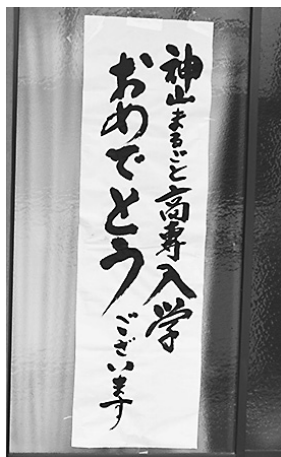 神山まるごと高専入学
おめでとうございます